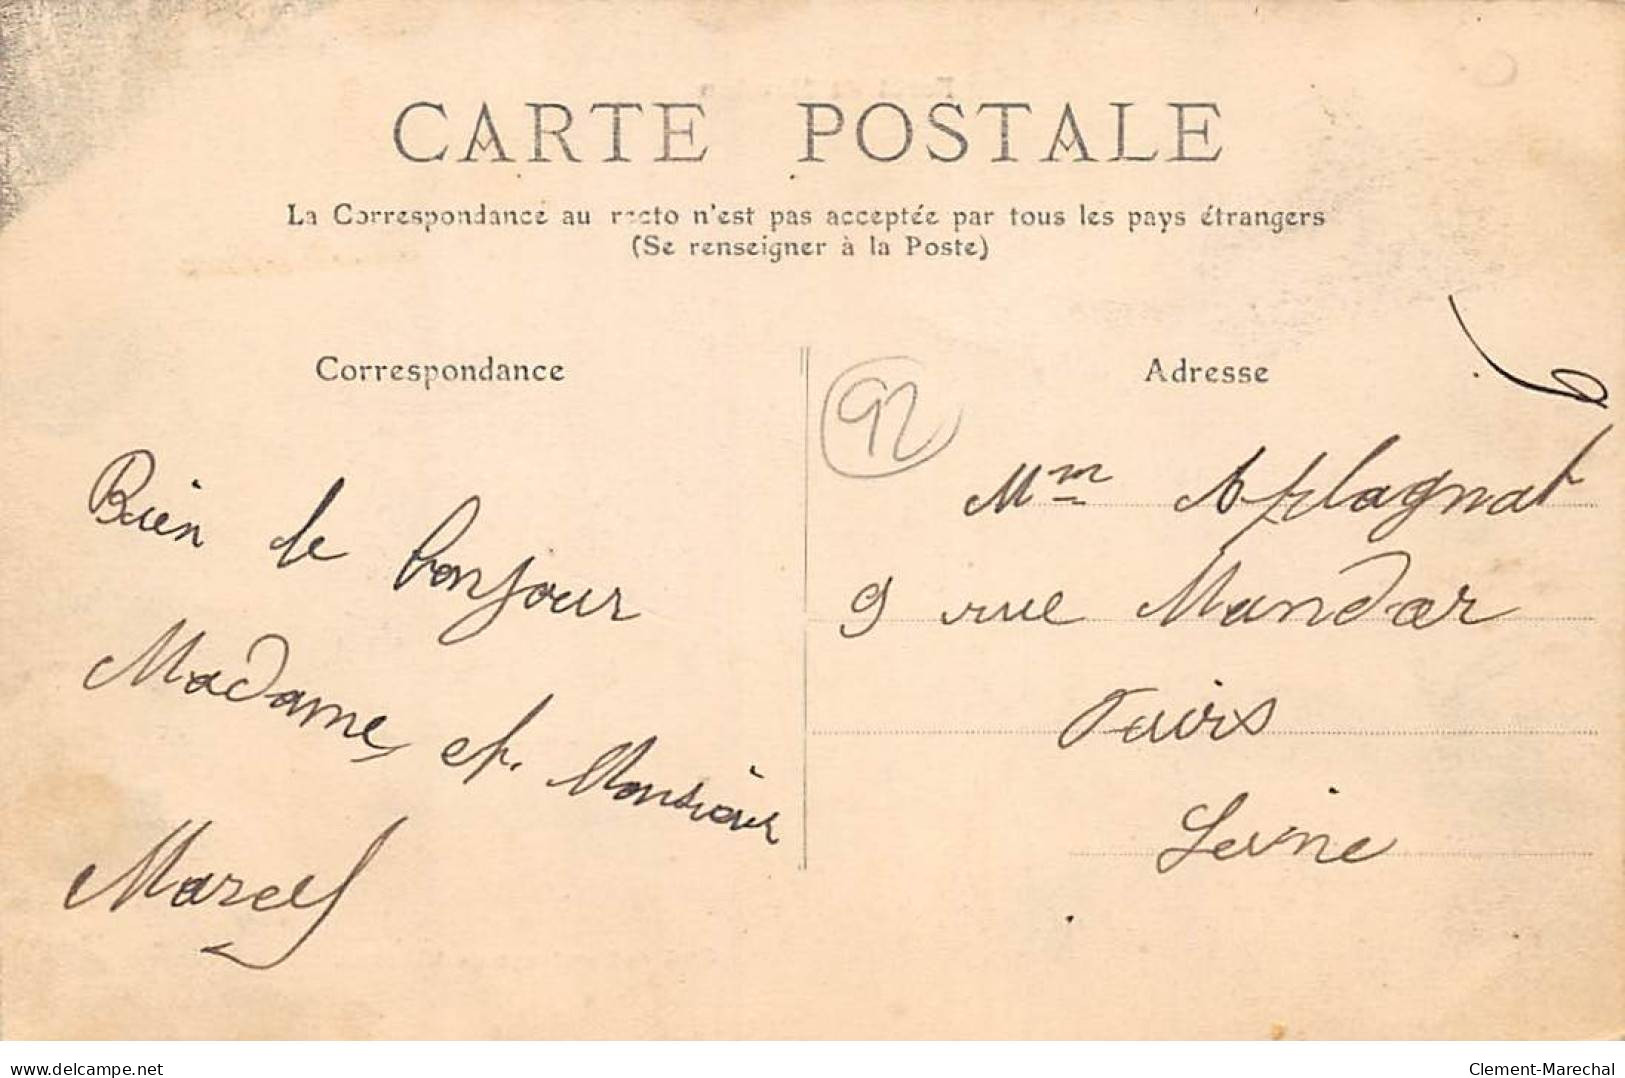 CARTE POSTALE
La Correspondance au recto n'est pas acceptée par tous les pays étrangers
(Se renseigner à la Poste)
Correspondance
Adresse
92
Bien le bonjour
Madame et Monsieur
Marcel
Mm Aplagnat
9 rue Mandar
Paris
Seine
delcampe.net
Clement-Marechal